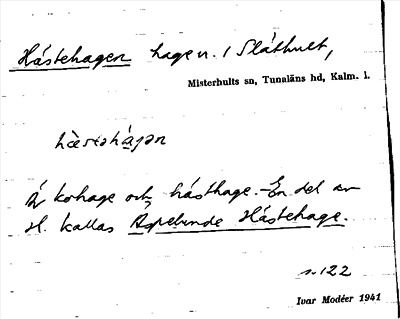 Hästehagen hage n. i Släthult,
Misterhults sn, Tunaläns hd, Kalm. l.
hæstəhagən
Är kohage och hästhage. - En del av
H. kallas Aspelunde Hästehage.
s. 122
Ivar Modéer 1941